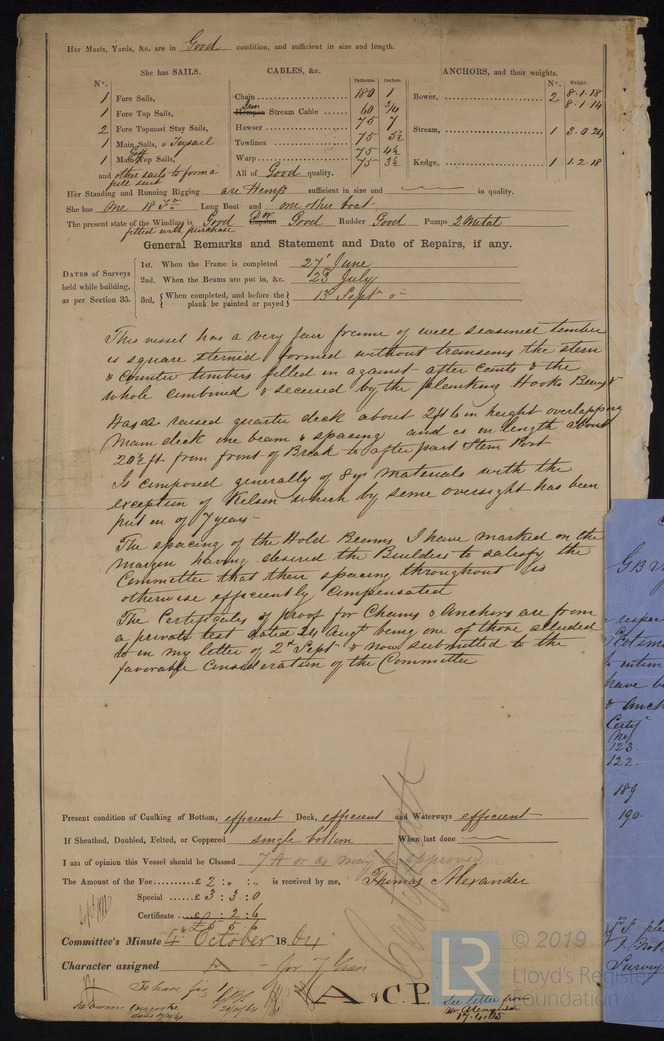 Her Masts, Yards, &c. are in Good condition, and sufficient in size and length.
She has SAILS.
Nº.
1 Fore Sails,
1 Fore Top Sails,
2 Fore Topmast Stay Sails,
1 Main Sails, & Trysail
1 Main Top Sails,
and other sails to form a
full suit
CABLES, &c. Fathoms. Inches.
Chain 180 1
Hempen Stream Cable 60 3/4
Hawser 75 7
Towlines 75 5½
75 4½
Warp 75 3½
All of Good quality.
ANCHORS, and their weights.
Nº. Weight.
Bower, 2 8.1.18
8.1.14
Stream, 1 3.0.24
Kedge, 1 1.2.18
Her Standing and Running Rigging are Hemp sufficient in size and in quality.
She has One 18 Long Boat and one other boat
The present state of the Windlass is Good Capstan Good Rudder Good Pumps 2 Metal
fitted with purchase
General Remarks and Statement and Date of Repairs, if any.
DATES of Surveys
held while building,
as per Section 35.
1st. When the Frame is completed 27 June
2nd. When the Beams are put in, &c. 23 July
3rd, When completed, and before the
plank be painted or payed 13 Sept
This vessel has a very fair frame of well seasoned timber
is square sterned formed without transoms the stern
& counter timbers filled in against after cants & the
whole combined & secured by the planking Hooks Beams &
Has a raised quarter deck about 2ft 6in height overlapping
main deck one beam & spacing and is in length about
20½ ft from front of Break to after part Stern Post
Is composed generally of 8 yr materials with the
exception of Kelson which by some oversight has been
put in of 7 years -
The spacing of the Hold Beams I have marked on the
margin having desired the Builders to satisfy the
Committee that their spacing throughout is
otherwise efficiently compensated
The Certificates of proof for Chains & Anchors are from
a private test dated 24 Augt being one of those alluded
to in my letter of 2d Sept & now submitted to the
favorable consideration of the Committee
Present condition of Caulking of Bottom, efficient Deck, efficient and Waterways efficient
If Sheathed, Doubled, Felted, or Coppered single bottom When last done
I am of opinion this Vessel should be Classed 7 A or as may be approved
The Amount of the Fee £ 2 : " : " is received by me, Thomas Alexander
Special £ 3 : 3 : 0
Certificate : 2 : 6
£ 5 5 6
Committee's Minute 4 October 1864
Character assigned A - for 7 Years
Certificate
To have
A & C.P.
See letter from
17.6.65
GB
respec
have b
& Anch
Certs
Nos
123
122
189
190
Survey
LR
© 2019
Lloyd's Register
Foundation